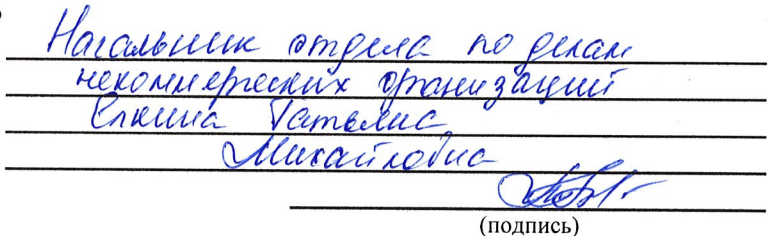 Начальник отдела по делам
некоммерческих организаций
Елкина Татьяна
Михайловна
(подпись)